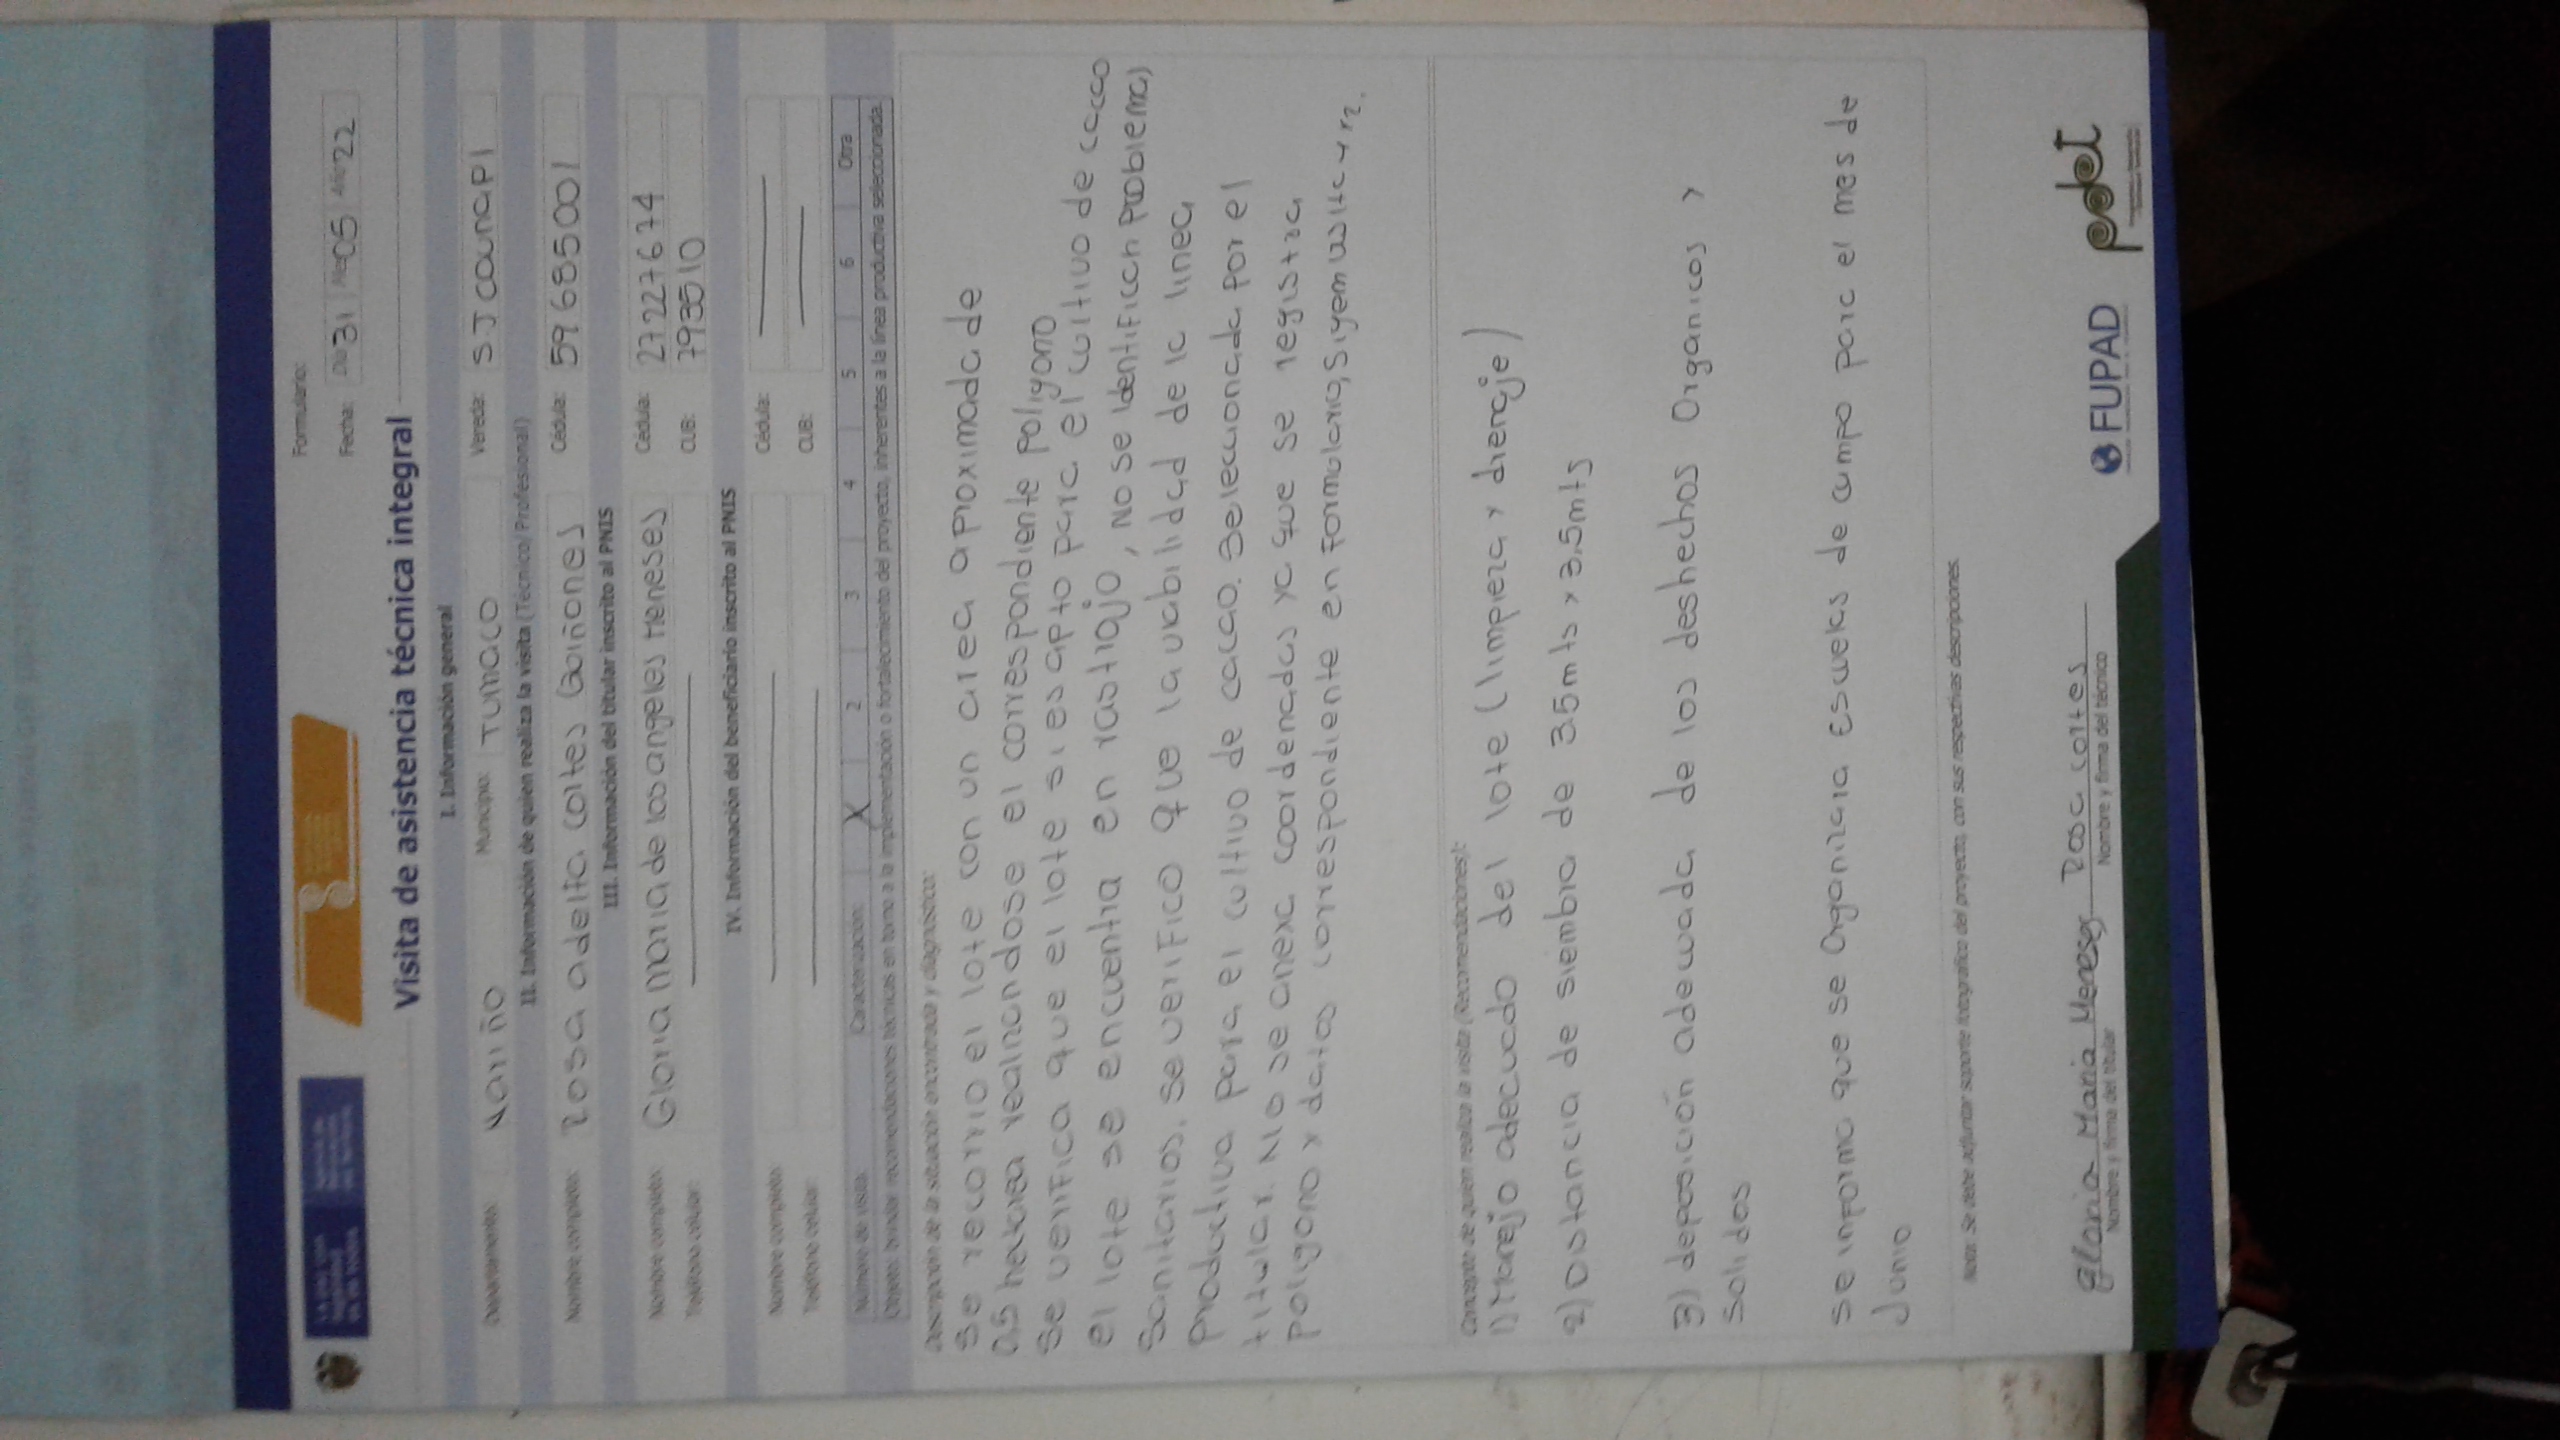 Formulario:
Fecha: Día 31 Mes 05 Año 22
Visita de asistencia técnica integral
I. Información general
Departamento: Nariño Municipio: TUMACO Vereda: SJ Caunapi
II. Información de quien realiza la visita (Técnico/ Profesional)
Nombre completo: Rosa adelia cortes Goiñones Cédula: 59685001
III. Información del titular inscrito al PNIS
Nombre completo: Gloria Maria de los angeles Meneses Cédula: 27227674
Teléfono celular: CUB: 793510
IV. Información del beneficiario inscrito al PNIS
Nombre completo: Cédula:
Teléfono celular: CUB:
Número de visita: Caracterización: X 2 3 4 5 6 Otra
Objeto: brindar recomendaciones técnicas en torno a la implementación o fortalecimiento del proyecto, inherentes a la línea productiva seleccionada.
Descripción de la situación encontrada y diagnóstico:
Se recorrio el lote con un area aproximada de
0,5 hectarea realizandose el correspondiente poligono
Se verifica que el lote si es apto para el cultivo de cacao
el lote se encuentra en rastrojo, No se identifican problemas
Sanitarios. se verifico que la viabilidad de la linea
Productiva para el cultivo de cacao. seleccionada por el
titular. No se anexa coordenadas ya que se registra
Poligono y datos correspondiente en formulario,
Concepto de quien realiza la visita (Recomendaciones):
1) Manejo adecuado del lote (limpieza y drenaje)
2) Distancia de siembra de 3.5mts x 3.5mts
3) deposición adecuada de los deshechos Organicos y
Solidos
Se informa que se Organizara Escuelas de campo para el mes de
Junio
Nota: Se debe adjuntar soporte fotográfico del proyecto, con sus respectivas descripciones.
Gloria Maria Meneses Rosa cortes
Nombre y firma del titular Nombre y firma del técnico
FUPAD pdet